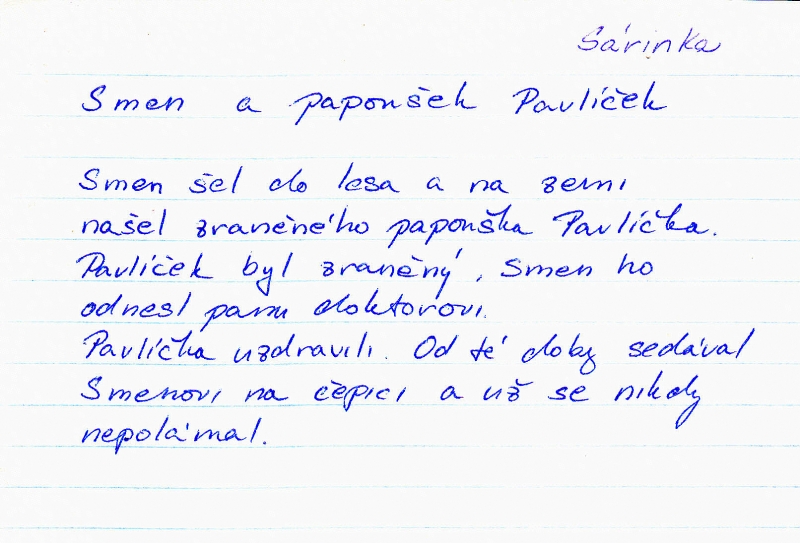 Sárinka
Smen a papoušek Pavlíček
Smen šel do lesa a na zemi
našel zraněného papouška Pavlíčka.
Pavlíček byl zraněný, Smen ho
odnesl panu doktorovi.
Pavlíčka uzdravili. Od té doby sedával
Smenovi na čepici a už se nikdy
nepolámal.